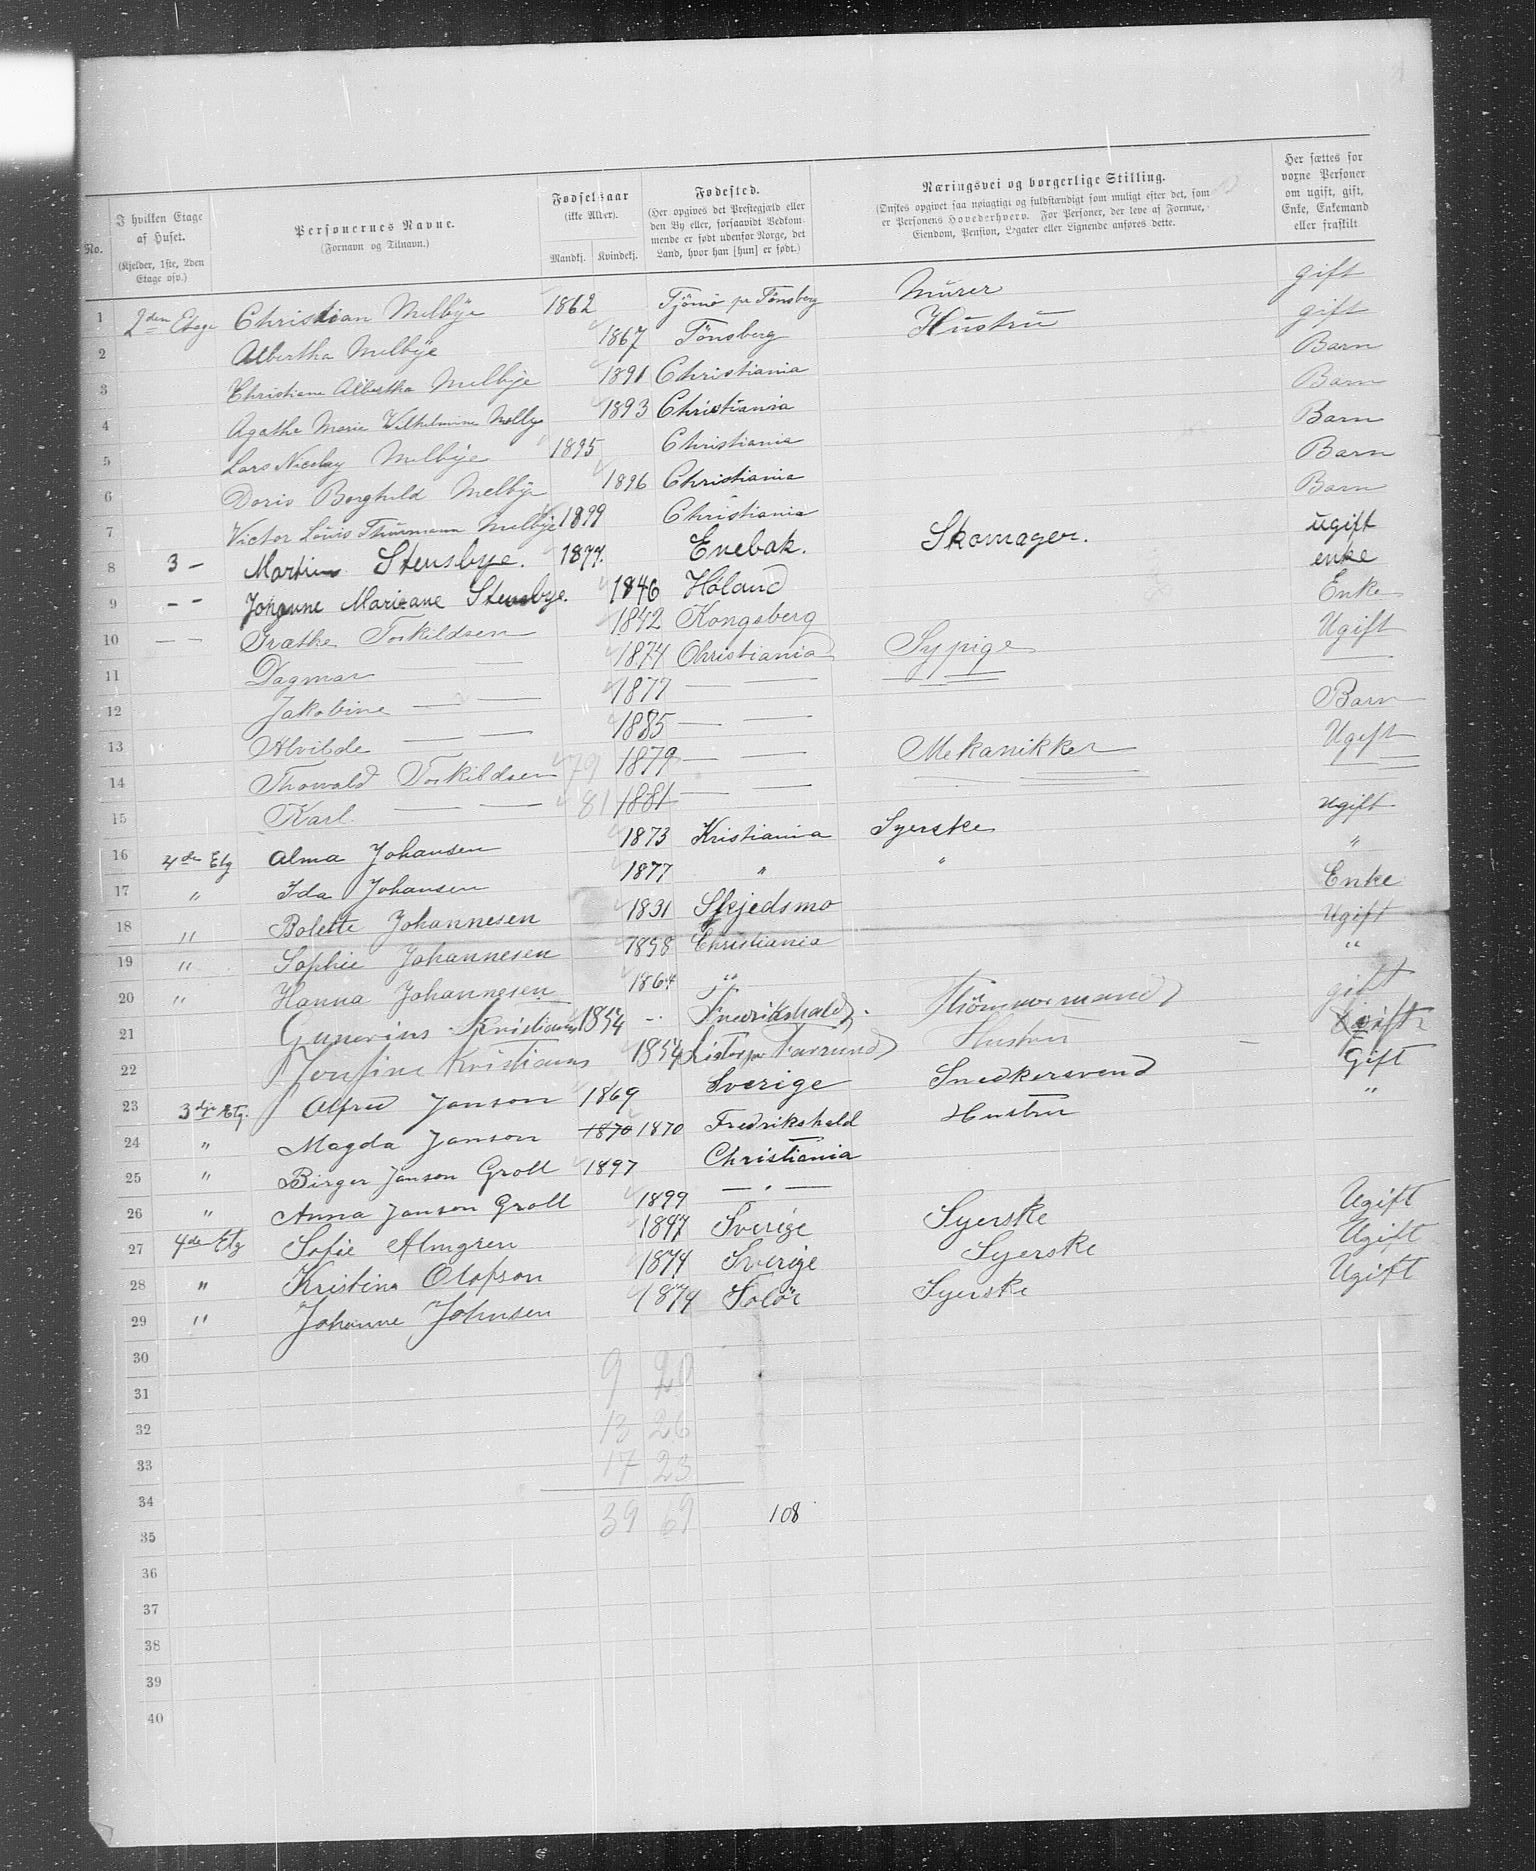 No.
I hvilken Etage af Huset. (Kjelder, 1ste, 2den Etage osv.)
Personernes Navne. (Fornavn og Tilnavn.)
Fødselsaar (ikke Alder). Mandkj. Kvindekj.
Fødested. (Her opgives det Prestegjæld eller den By eller, forsaavidt Vedkommende er født udenfor Norge, det Land, hvor han [hun] er født.)
Næringsvei og borgerlige Stilling. (Ønskes opgivet saa nøiagtigt og fuldstændigt som muligt efter det, som er Personens Hovederhverv. For Personer, der leve af Formue, Eiendom, Pension, Legater eller Lignende anføres dette.
Her sættes for voxne Personer om ugift, gift, Enke, Enkemand eller fraskilt
1 2den Etage Christian Melbÿe 1862 Tjömö pr Tönsberg Mürer gift
2 Albertha Melbÿe 1867 Tönsberg Hüstrü gift
3 Christiane Albertha Melbÿe 1891 Christiania Barn
4 Agathe Marie Vilhelmine Melbye 1893 Christiania Barn
5 Lars Nicolay Melbÿe 1895 Christiania Barn
6 Doris Borghild Melbÿe 1896 Christiania Barn
7 Victor Loüis Thürmann Melbÿe 1899 Christiania Barn
8 3 - Martin Stensbye. 1877. Enebak. Skomager. ugift
9 - - Johanne Mariane Stensbye. 1846 Høland enke
10 — — Grathe Torkildsen 1842 Kongsberg Enke
11 Dagmar — 1874 Christiania Sypige Ugift
12 Jakobine — — 1877 — — — — —
13 Alvilde — — 1885 — — Barn
14 Thorvald Torkildsen 79 1879 — — Mekanikker Ugift
15 Karl. — — 81 1881 — — — — —
16 4de Etg Alma Johansen 1873 Kristiania Syerske ugift
17 " Ida Johansen 1877 " " "
18 " Bolette Johannesen 1831 Skjedsmo Enke
19 " Sophie Johannesen 1858 Christiania Ugift
20 " Hanna Johannesen 1864 " "
21 Gunerius Kristians 1854 - Fredrikshald. gift
22 1854 Lister pr Farsund Hustru gift
23 3dje Etg. Alfred Janson 1869 Sverige Snedkersvend Gift
24 " Magda Janson 1870 1870 Fredrikshald Hustru "
25 " Birger Janson Groll 1897 Christiania
26 " Anna Janson Groll 1899 — " —
27 4de Etg Sofie Almgren 1877 Sverige Syerske Ugift
28 " Kristina Olofson 1874 Sverige Syerske Ugift
29 " Johanne Johnsen 1874 Solör Syerske Ugift
30 9 20
31
32 13 26
33 17 23
34
35 39 69 108
36
37
38
39
40